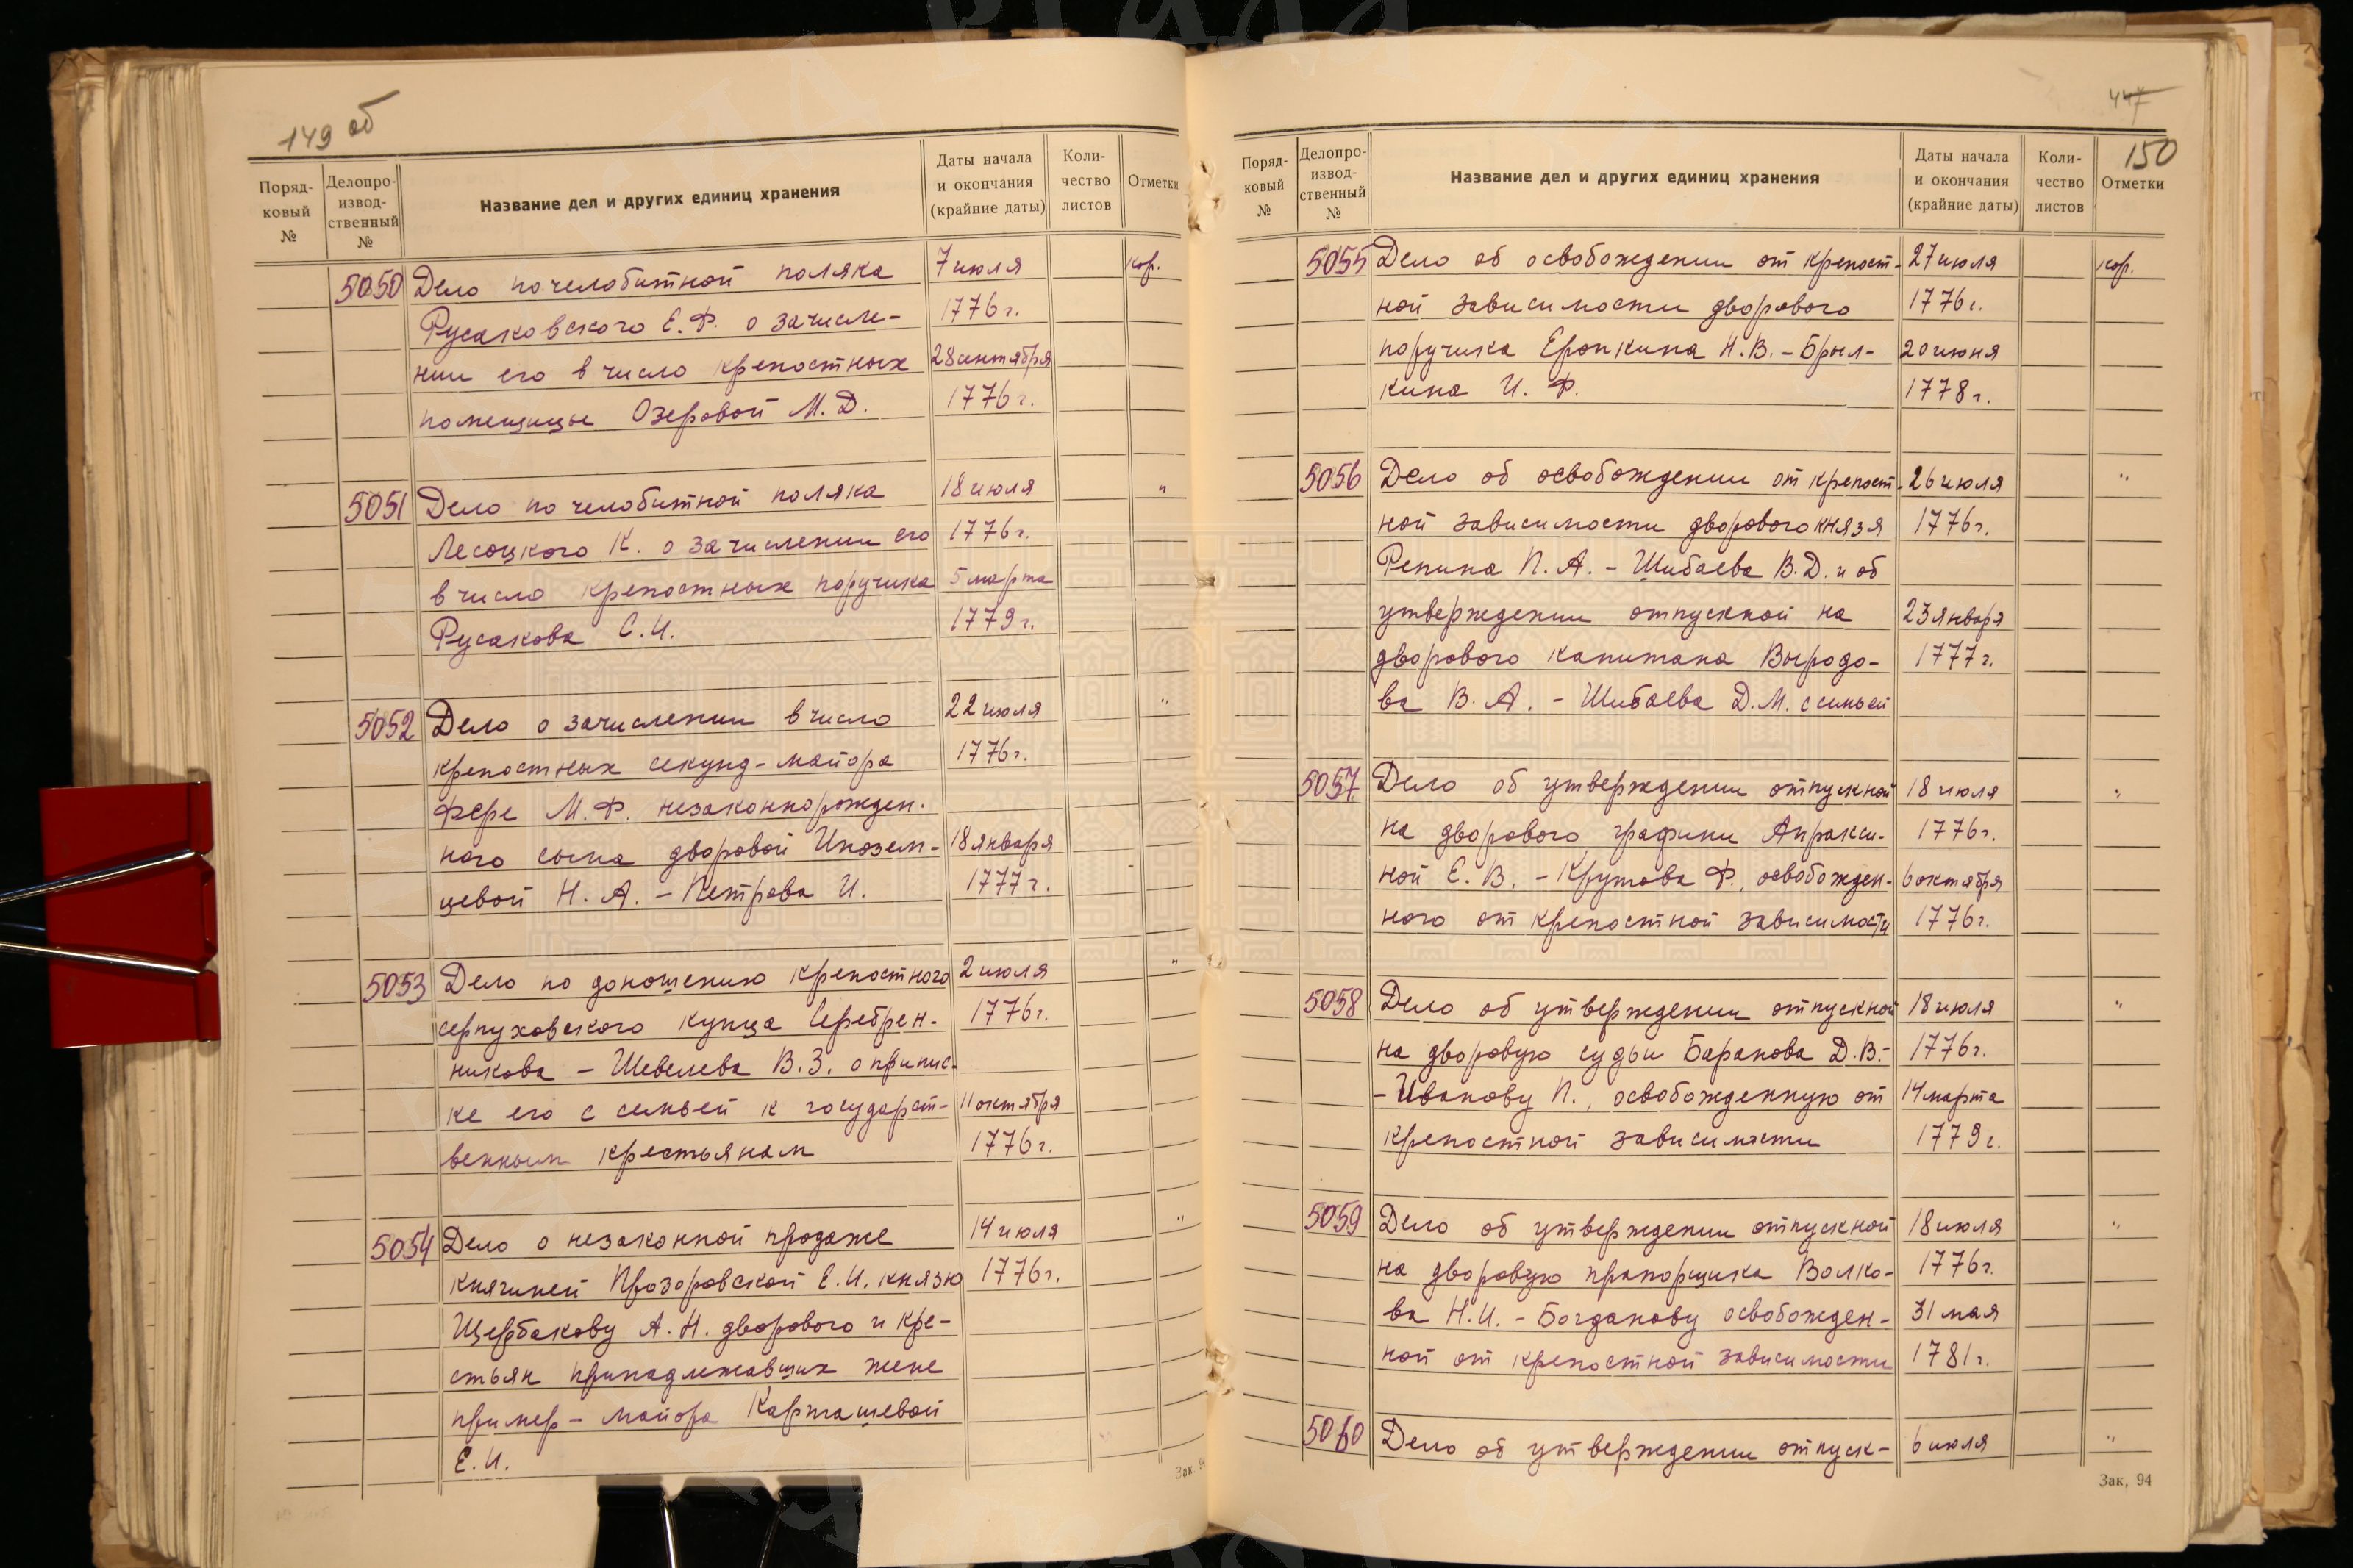 149 об
Поряд-
ковый
№
Делопро-
извод-
ственный
№
Название дел и других единиц хранения
Даты начала
и окончания
(крайние даты)
Коли-
чество
листов
Отметки
5050 Дело по челобитной поляка 7 июля кор.
Русаковского Е.Ф. о зачисле- 1776 г.
нии его в число крепостных 28 сентября
помещицы Озеровой М.Д. 1776 г.
5051 Дело по челобитной поляка 18 июля "
Лесоцкого К. о зачислении его 1776 г.
в число крепостных поручика 5 марта
Русакова С.И. 1779 г.
5052 Дело о зачислении в число 22 июля "
крепостных секунд-майора 1776 г.
Фере М.Ф. незаконнорожден-
ного сына дворовой Инозем- 18 января
цевой Н.А. - Петрова И. 1777 г.
5053 Дело по доношению крепостного 2 июля "
серпуховского купца Серебрен- 1776 г.
никова - Шевелева В.З. о припис-
ке его с семьей к государст- 11 октября
венным крестьянам 1776 г.
5054 Дело о незаконной продаже 14 июля "
княгиней Прозоровской Е.И. князю 1776 г.
Щербакову А.Н. дворового и кре-
стьян принадлежавших жене
пример-майора Карташевой
Е.И.
Зак. 94
447
150
Поряд-
ковый
№
Делопро-
извод-
ственный
№
Название дел и других единиц хранения
Даты начала
и окончания
(крайние даты)
Коли-
чество
листов
Отметки
5055 Дело об освобождении от крепост- 27 июля кор.
ной зависимости дворового 1776 г.
поручика Еропкина Н.В. - Брыл- 20 июня
кина И.Ф. 1778 г.
5056 Дело об освобождении от крепост- 26 июля "
ной зависимости дворового князя 1776 г.
Репина П.А. - Шибаева В.Д. и об
утверждении отпускной на 23 января
дворового капитана Выродо- 1777 г.
ва В.А. - Шибаева Д.М. с семьей
5057 Дело об утверждении отпускной 18 июля "
на дворового графини Апракси- 1776 г.
ной Е.В. - Крутова Ф., освобожден- 6 октября
ного от крепостной зависимости 1776 г.
5058 Дело об утверждении отпускной 18 июля "
на дворовую судьи Баранова Д.В.- 1776 г.
- Иванову П., освобожденную от 14 марта
крепостной зависимости 1779 г.
5059 Дело об утверждении отпускной 18 июля "
на дворовую прапорщика Волко- 1776 г.
ва Н.И. - Богданову освобожден- 31 мая
ной от крепостной зависимости 1781 г.
5060 Дело об утверждении отпуск- 6 июля "
Зак. 94